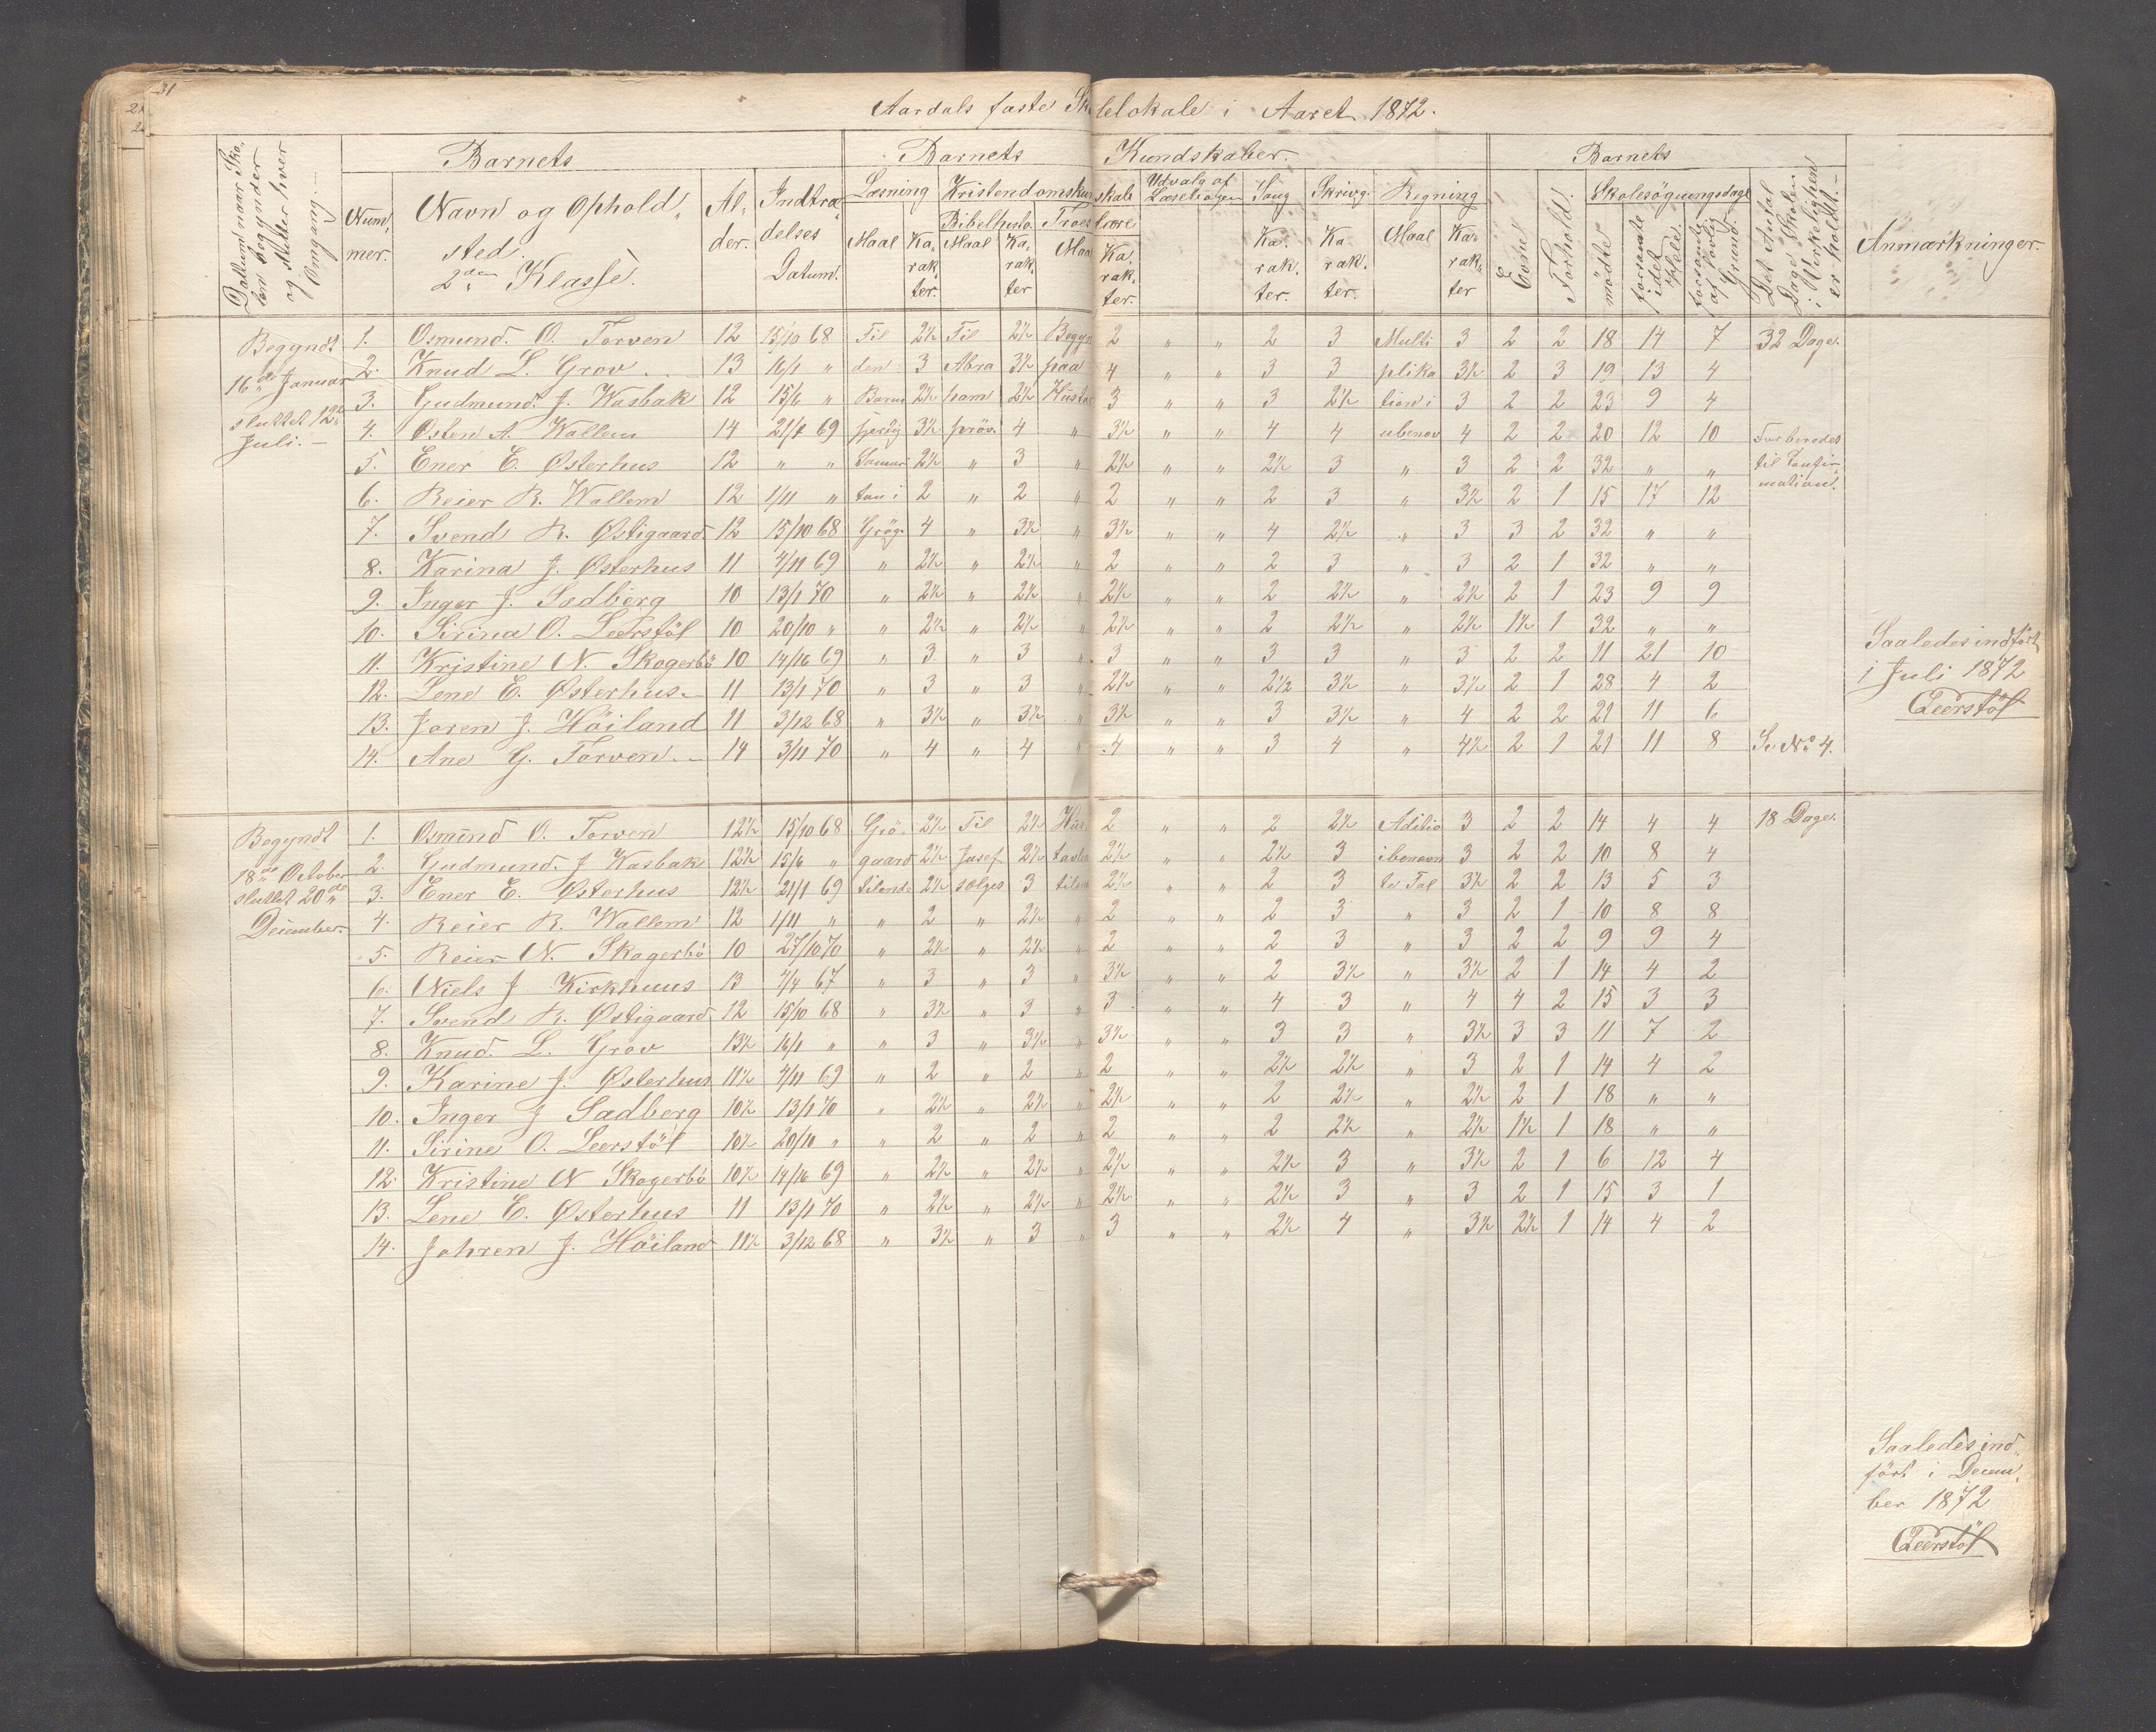 31
Aardals faste Skolelokale i Aaret 1872.
Datum naar Skolen begynder og slutter hver Omgang.
Barnets
Barnets Kundskaber.
Barnets
Nummer.
Navn og Opholdsted. 2den Klasse.
Alder.
Indtrædelses Datum.
Læsning
Kristendomskundskab
Udvalg af Læsebogen
Sang
Skrivg.
Regning
Evne
Forhold.
Skolesögningsdage
Det Antal Dage Skolen i Virkeligheden er holdt.
Anmærkninger.
Bibelhisto.
Troeslære
Maal Karakter. Maal Karakter Maal Karakter. Karakter. Karakter. Maal Karakter
mødte forsømte i det Hele forsømte af lovlig Grund.
Begyndt 16de Januar sluttet 12te Juli.
1. Osmund. O. Torven 12 15/10 68 Til 2½ Til 2½ Begyn 2 " " 2 3 Multi 3 2 2 18 14 7 32 Dage.
2. Knud L. Grov 13 16/1 " den 3 Abra 3½ paa 4 " " 3 3 plika 3½ 2 3 19 13 4
3. Gudmund. J. Wasbak 12 15/6 " Barm 2½ ham 2½ Hustav 3 " " 3 2½ tion i 3 2 2 23 9 4
4. Østen A. Wallem 14 21/1 69 hjertig 3½ pröv. 4 " 3½ " " 4 4 ubenæv 4 2 2 20 12 10 Forberedes
5. Ener E. Østerhus 12 " " Samari 2½ " 3 " 2½ " " 2½ 3 " 3 2 2 32 " " til Confir-
6. Reier R. Wallem 12 1/11 " tan i 2 " 2 " 2 " " 2 3 " 3½ 2 1 15 17 12 mation.
7. Svend R. Østigaard 12 15/10 68 Grög. 4 " 3½ " 3½ " " 4 2½ " 3 3 2 32 " "
8. Karina J. Østerhus 11 4/11 69 " 2½ " 2½ " 2 " " 2 3 " 3 2 1 32 " "
9. Inger J. Sadberg 10 13/1 70 " 2½ " 2½ " 2½ " " 2 2½ " 2½ 2 1 23 9 9
10. Sirina O. Leerstöl 10 20/10 " " 2½ " 2½ " 2½ " " 2 2½ " 2½ 1½ 1 32 " "
11. Kristine N. Skogerbö 10 14/16 69 " 3 " 3 " 3 " " 3 3 " 3 2 2 11 21 10
12. Lene E. Østerhus 11 13/1 70 " 3 " 3 " 2½ " " 2½ 3½ " 3½ 2 1 28 4 2
13. Joren J. Höiland 11 3/12 68 " 3½ " 3½ " 3½ " " 3 3½ " 4 2 2 21 11 6
14. Ane G. Torven 14 3/11 70 " 4 " 4 " 4 " " 3 4 " 4½ 2 1 21 11 8 Se No 4.
Saaledes indfört
i Juli 1872
Leerstöl
Begyndt 18de October sluttet 20de December.
1. Osmund O. Torven 12½ 15/10 68 Grö- 2½ Til 2½ Hus 2 " " 2 2½ Aditio 3 2 2 14 4 4 18 Dage.
2. Gudmund. J Wasbak 12½ 15/6 " gaard 2½ Josef 2½ tavlen 2½ " " 2½ 3 i benævn 3 2 2 10 8 4
3. Ener E. Østerhus 12½ 21/1 69 tilende 2½ sælges 3 tilend 2½ " " 2 3 te Tal 3½ 2 2 13 5 3
4. Reier R. Wallem 12 1/11 " " 2 " 2½ " 2 " " 2 3 " 3 2 1 10 8 8
5. Reier N. Skogerbö 10 27/10 70 " 2½ " 2½ " 2 " " 2 3 " 3 2 2 9 9 4
6. Niels J Kirkhuus 13 4/4 67 " 3 " 3 " 3½ " " 2 3½ " 3½ 2 1 14 4 2
7. Svend R. Østigaard 12 15/10 68 " 3½ " 3 " 3 " " 4 3 " 4 4 2 15 3 3
8. Knud. L. Grov 13½ 16/1 " " 3 " 3½ " 3½ " " 3 3 " 3½ 3 3 11 7 2
9. Karine J. Østerhus 11½ 4/11 69 " 2 " 2 " 2 " " 2½ 2½ " 3 2 1 14 4 2
10. Inger J Sadberg 10½ 13/1 70 " 2½ " 2½ " 2½ " " 2 2½ " 2½ 2 1 18 " "
11. Sirine O. Leerstöl 10½ 20/10 " " 2 " 2 " 2 " " 2 2½ " 2½ 1½ 1 18 " "
12. Kristine N Skogerbö 10½ 14/16 69 " 2½ " 2½ " 2½ " " 2½ 3 " 3½ 2 1 6 12 4
13. Lene E. Østerhus 11 13/1 70 " 2½ " 2½ " 2½ " " 2½ 3 " 3 2 1 15 3 1
14. Johren J. Höiland 11½ 3/12 68 " 3½ " 3 " 3 " " 2½ 4 " 3½ 2½ 1 14 4 2
Saaledes ind-
fört i Decem-
ber 1872
Leerstöl